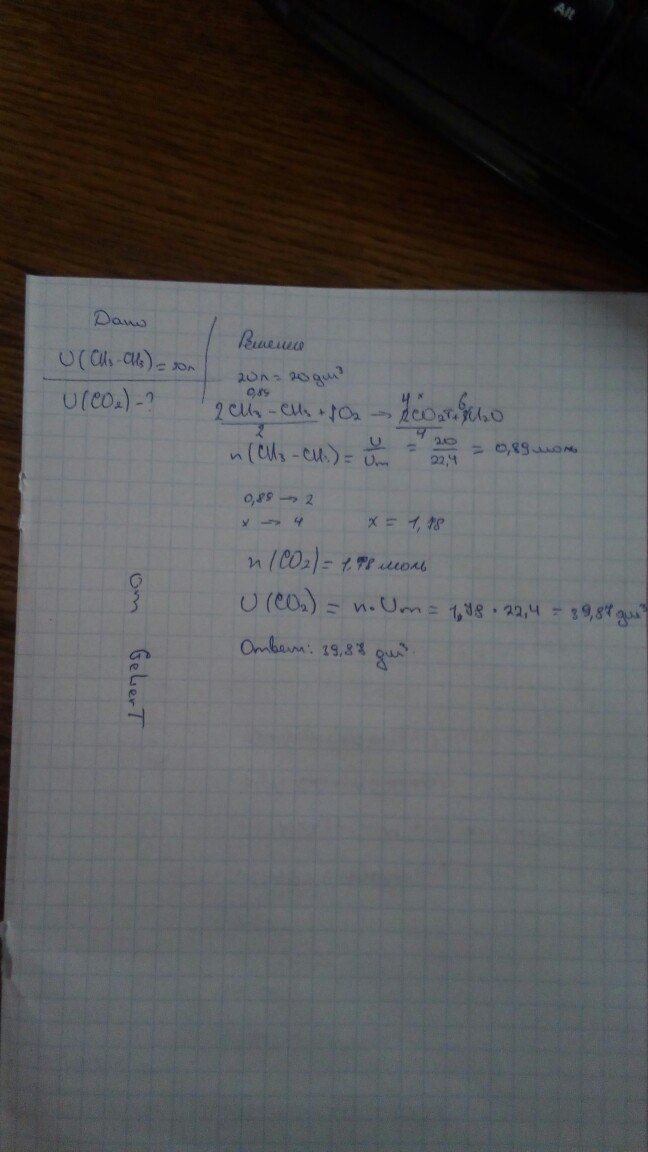 Alt
Дано
U(CH₃-CH₃) = 20л
U(CO₂) - ?
Решение
20л = 20дм³
0,89 4 x 6
2CH₃ - CH₃ + 7O₂ → CO₂ + H₂O
2 4
n(CH₃ - CH₃) = U/Um = 20/22,4 = 0,89 моль
0,89 → 2
x → 4 x = 1,78
n(CO₂) = 1,78 моль
U(CO₂) = n · Um = 1,78 · 22,4 = 39,87 дм³
Ответ: 39,87 дм³.
От
GeberT